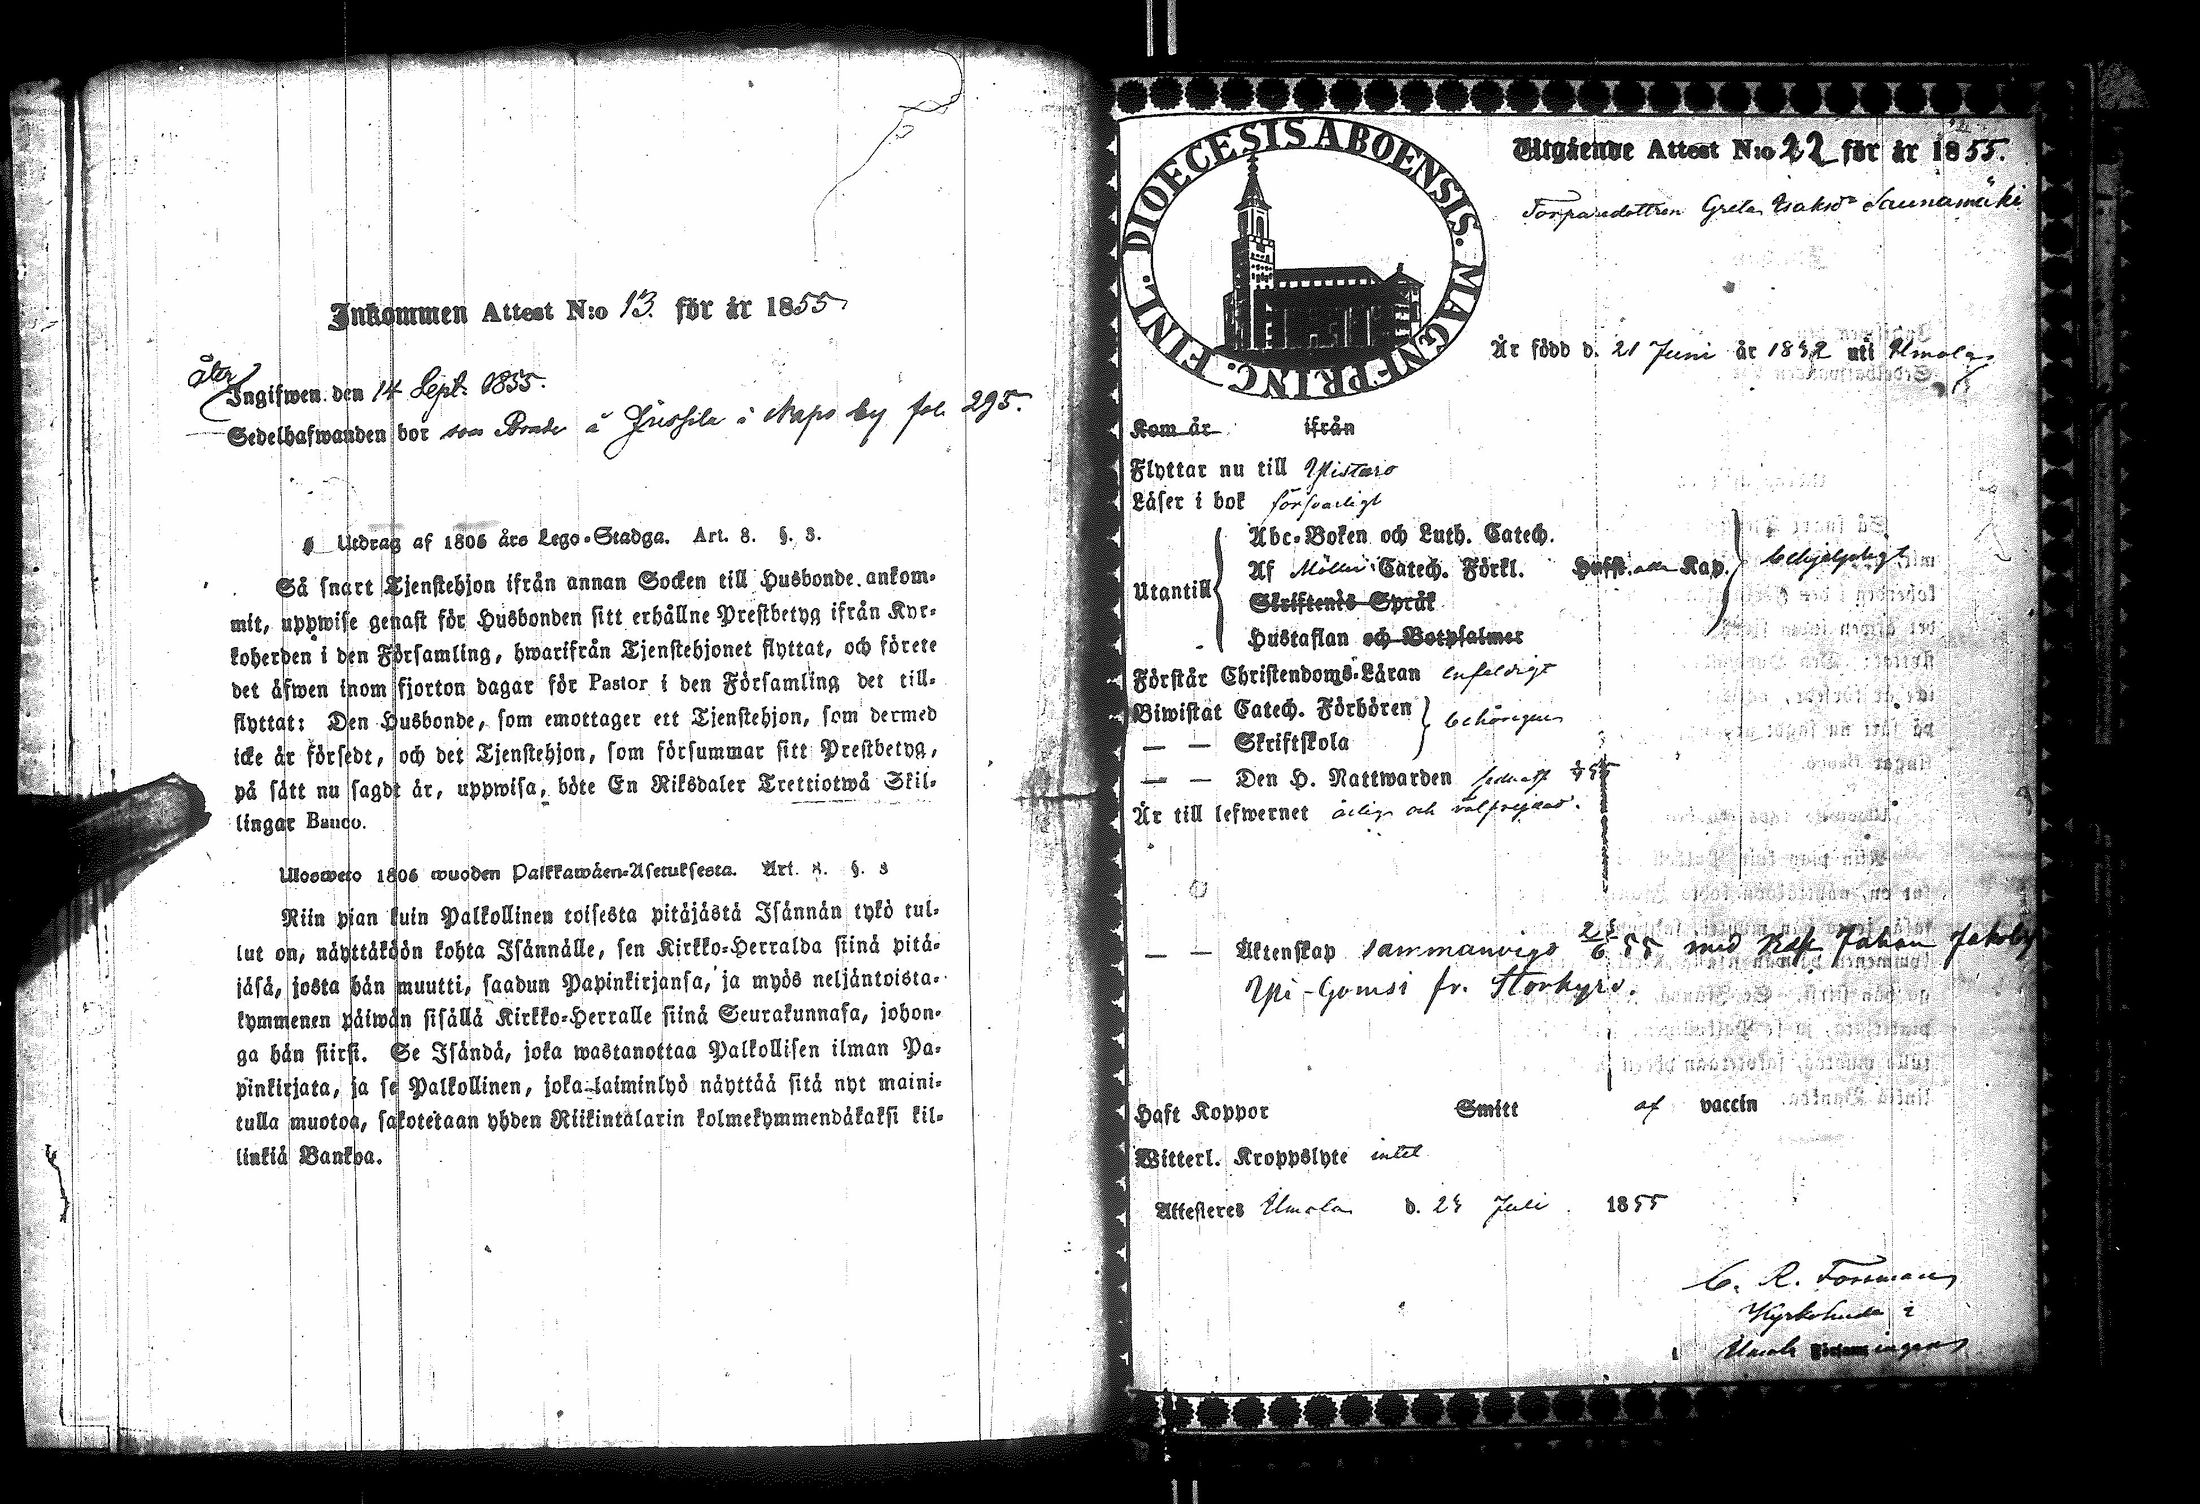 Inkommen Attest N:o 13. för år 1855
åter
Ingifwen den 14 Sept. 1855.
Sedelhafwanden bor i by fol. 295.
Utdrag af 1806 års Lego-Stadga. Art. 8. §. 3.
Så snart Tjenstehjon ifrån annan Socken till Husbonde ankom-
mit, uppwise genast för Husbonden sitt erhållne Prestbetyg ifrån Kyr-
koherden i den Församling, hwarifrån Tjenstehjonet flyttat, och förete
det äfwen inom fjorton dagar för Pastor i den Församling det till-
flyttat: Den Husbonde, som emottager ett Tjenstehjon, som dermed
icke är försedt, och det Tjenstehjon, som försummar sitt Prestbetyg,
på sätt nu sagdt är, uppwisa, böte En Riksdaler Trettiotwå Skil-
lingar Banco.
Ulosweto 1806 wuoden Palkkawäen-Asetuksesta. Art. 8. §. 3
Niin pian kuin Palkollinen toisesta pitäjästä Isännän tykö tul-
lut on, näyttäköön kohta Isännälle, sen Kirkko-Herralda siinä pitä-
jäsä, josta hän muutti, saadun Papinkirjansa, ja myös neljäntoista-
kymmenen päiwän sisällä Kirkko-Herralle siinä Seurakunnasa, johon-
ga hän siirsi. Se Isändä, joka wastanottaa Palkollisen ilman Pa-
pinkirjata, ja se Palkollinen, joka laiminlyö näyttää sitä nyt maini-
tulla muotoa, sakotetaan yhden Riikintalarin kolmekymmendäkaksi kil-
linkiä Bankoa.
DIOECESIS ABOENSIS. MAGNI PRINC. FINL.
Utgående Attest N:o 22 för år 1855.
Torparedottren Greta Isaksdr Saunamäki
Är född d. 21 Juni år 1832 uti Ilmola
Kom år ifrån
Flyttar nu till Ylistaro
Läser i bok försvarligt
Utantill
Abc-Boken och Luth. Catech.
Af Catech. Förkl. Kap. behjelpligt
Skriftenes Språk
Hustaflan och Botpsalmer
Förstår Christendoms-Läran enfaldigt
Biwistat Catech. Förhören behörigen
— — Skriftskola
— — Den H. Nattwarden 55
Är till lefwernet ärlig och välfrejdad.
— — Äktenskap sammanvigd 55 med Johan Jakobs
Yli-Gomsi fr. Storkyro.
Haft Koppor Smitt af vaccin
Witterl. Kroppslyte intet
Attesteras Ilmola d. 23 Juli 1855
C. R. Forsman
Kyrkoherde i
Ilmola